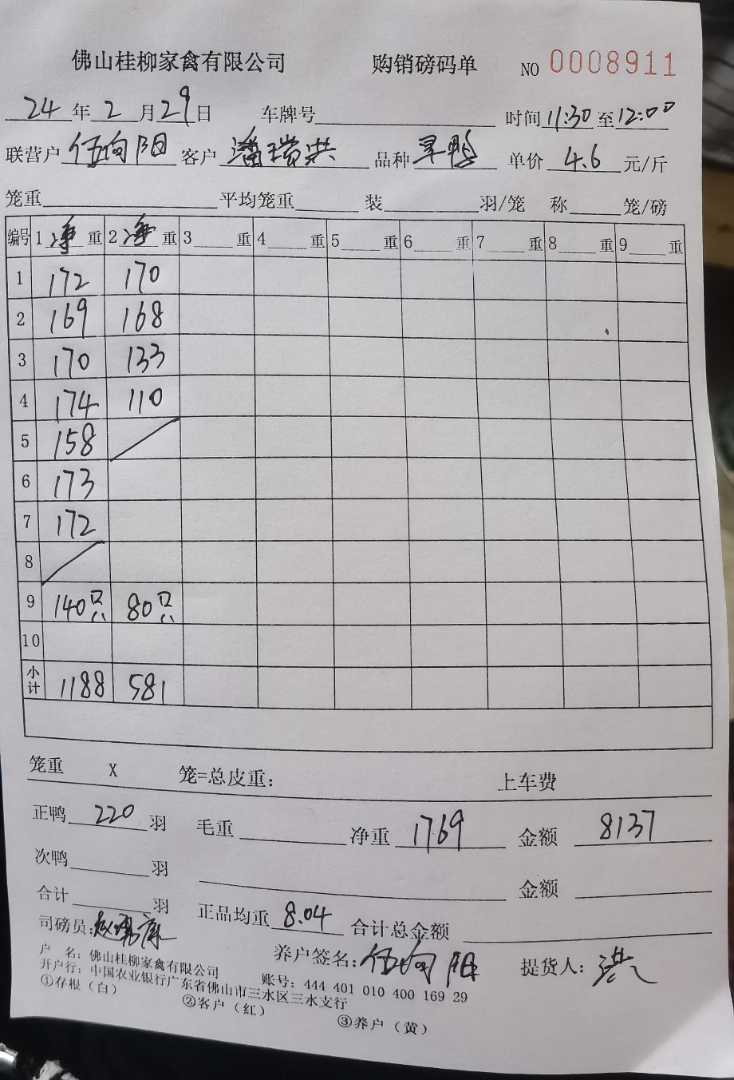 佛山桂柳家禽有限公司 购销磅码单 NO 0008911
24年2月29日 车牌号 时间11:30至12:00
联营户 伍向阳 客户 潘瑞洪 品种 旱鸭 单价 4.6 元/斤
笼重 平均笼重 装 羽/笼 称 笼/磅
编号 1净重 2净重 3 重 4 重 5 重 6 重 7 重 8 重 9 重
1 172 170
2 169 168
3 170 133
4 174 110
5 158
6 173
7 172
8
9 140只 80只
10
小计 1188 581
笼重 X 笼=总皮重: 上车费
正鸭 220 羽 毛重 净重 1769 金额 8137
次鸭 羽 金额
合计 羽 正品均重 8.04 合计总金额
司磅员: 养户签名: 伍向阳 提货人: 洪
户 名: 佛山桂柳家禽有限公司
开户行: 中国农业银行广东省佛山市三水区三水支行 账号: 444 401 010 400 169 29
①存根(白) ②客户(红) ③养户(黄)